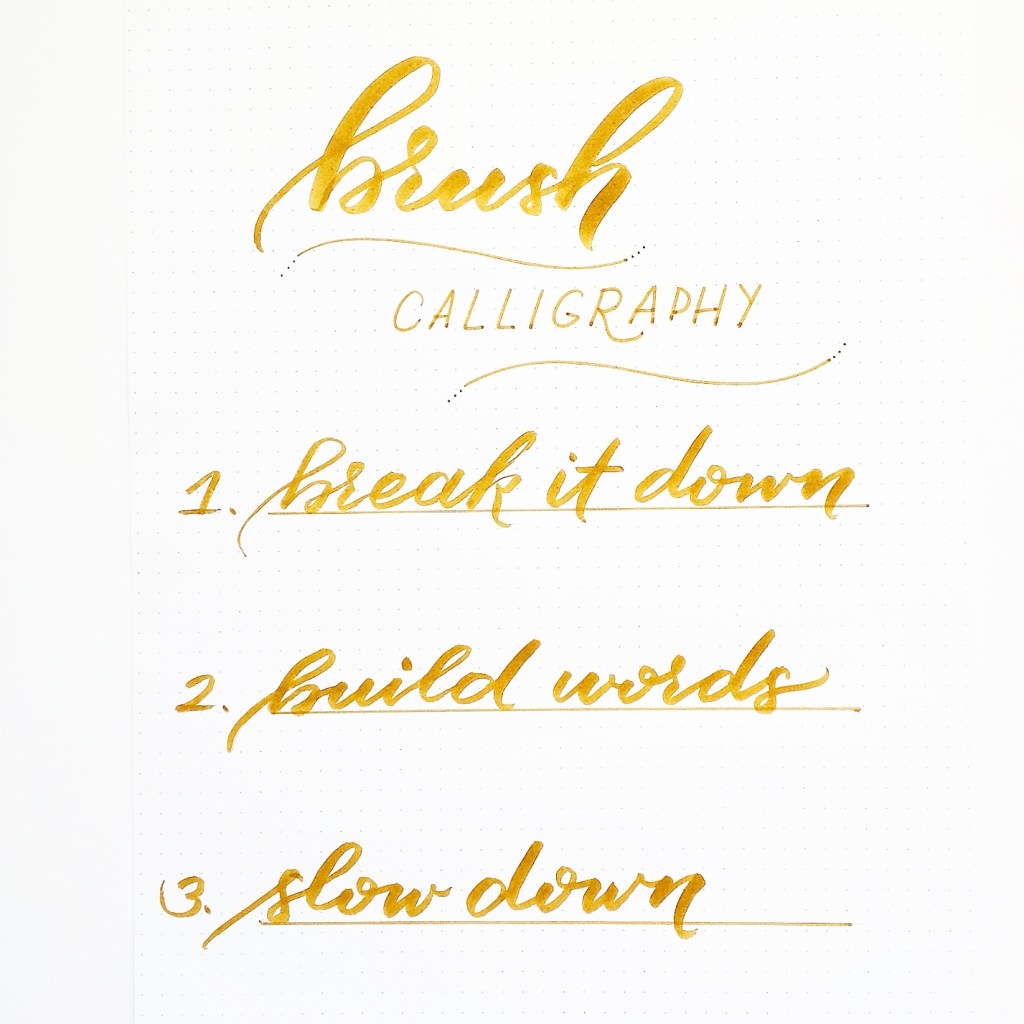 brush
CALLIGRAPHY
1. break it down
2. build words
3. slow down